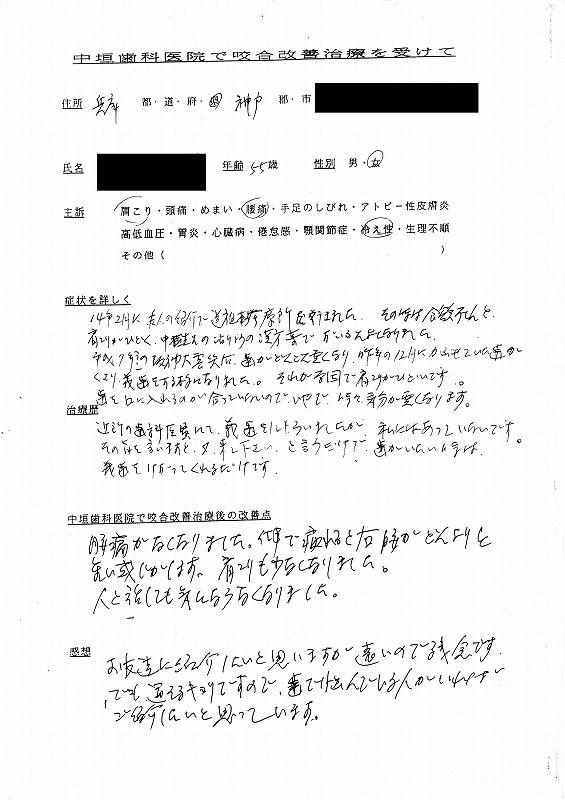 中垣歯科医院で咬合改善治療を受けて
住所 兵庫 都・道・府・県 神戸 郡・市
氏名 年齢 55歳 性別 男・女
主訴 肩こり・頭痛・めまい・腰痛・手足のしびれ・アトピー性皮膚炎
高低血圧・胃炎・心臓病・倦怠感・顎関節症・冷え性・生理不順
その他( )
症状を詳しく
14年2月に 友人の紹介で 診療所を
肩こりがひどく、中垣先生の 漢方薬で
平成7年の阪神大震災后、歯がどんどん悪くなり、昨年の12月に かぶせていた歯が
義歯を なりました。それが原因で肩こりがひどいです。
歯を口に入れるのが合っていないので いやで、時々 気分が悪くなります。
治療歴
近診の歯科医院にて、義歯を してもらいましたが、私にはあっていないです。
その事を言いますと、又、来て下さい、と言うだけで、歯がいたい時は、
義歯を けずってくれるだけです。
中垣歯科医院で咬合改善治療後の改善点
腰痛がなくなりました。仕事で疲れると右腰がどんよりと
重い感じがします。肩こりも少なくなりました。
人と話しても気にならなくなりました。
感想
お友達に紹介したいと思いますが遠いので残念です。
でも通えるキョリですので、歯で悩んでいる人がいれば
ご紹介したいと思っています。